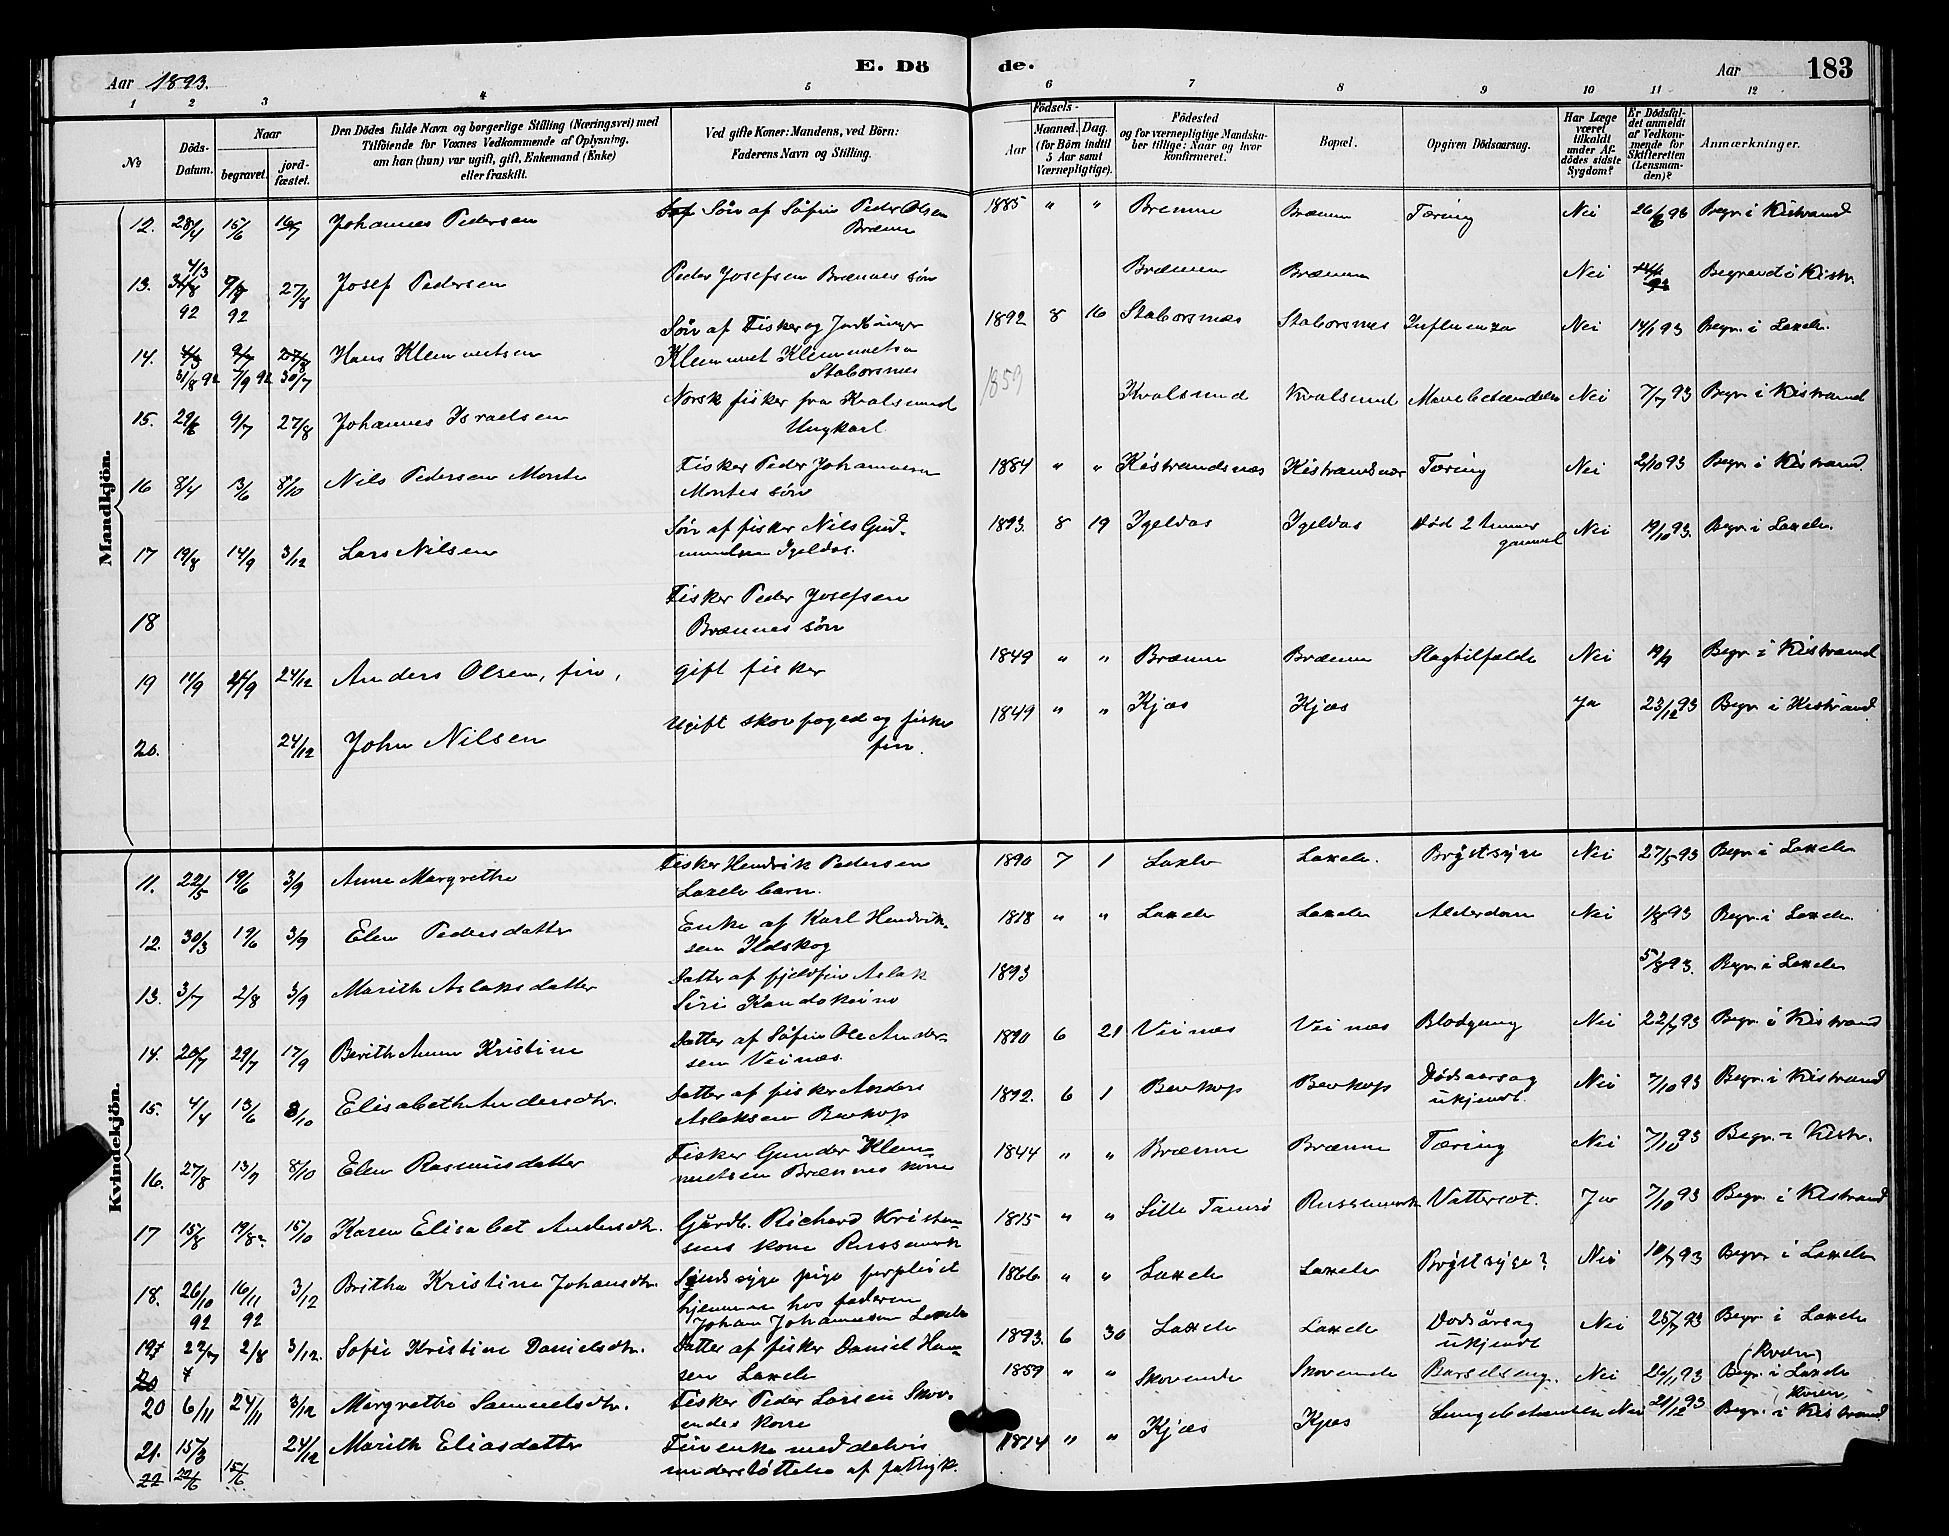 Aar 1893. E. Dö de. Aar 183
1 2 3 4 5 6 7 8 9 10 11 12
No
Döds-Datum.
Naar
begravet.
jordfæstet.
Den Dödes fulde Navn og borgerlige Stilling (Næringsvei) med
Tilföiende for Voxnes Vedkommende af Oplysning.
om han (hun) var ugift, gift, Enkemand (Enke)
eller fraskilt.
Ved gifte Koner: Mandens, ved Börn:
Faderens Navn og Stilling.
Födsels-
Aar
Maaned. Dag.
(for Börn indtil
5 Aar samt
Værnepligtige).
Födested
og for værnepligtige Mandskaber tillige: Naar og hvor
konfirmeret.
Bopæl.
Opgiven Dödsaarsag.
Har Læge
været
tilkaldt
under Afdödes sidste
Sygdom?
Er Dödsfaldet anmeldt
af Vedkommende for
Skifteretten
(Lensmanden)?
Anmærkninger.
Mandkjön.
12. 28/4 15/6 16/7 Johannes Pedersen Søn af Søfin Peder Olsen 1885 " " Brenne Brænne Tæring Nei 26/6 93 Begr. i Kistrand
Brænne
13. 27/8 Josef Pedersen Peder Josefsen Brænnes søn Brænne Brænne Nei Begravd i Kistr.
92 92
14. Hans Klemmetsen Søn af Fisker og Jordbruger 1892 8 16 Staborsnes Staborsnes Influenza Nei 14/1 93 Begr. i Laxelv.
31/8 92 7/9 92 30/7 Klemmet Klemmetsen
Staborsnes
15. 29/6 9/7 27/8 Johannes Israelsen Norsk fisker fra Kvalsund 1859 Kvalsund Kvalsund Mavebetændelse Nei 7/7 93 Begr. i Kistrand
Ungkarl
16 8/4 13/6 8/10 Nils Pedersen Monte Fisker Peder Johannesen 1884 " " Kistrandsnæs Kistrandsnæs Tæring Nei 2/10 93 Begr. i Kistrand.
Montes søn
17 19/8 14/9 3/12 Lars Nilsen Søn af fisker Nils Gud- 1893. 8 19 Igeldas Igeldas Død 2 timer Nei 19/10 93. Begr. i Laxelv.
mundsen Igeldas. gammel
18 Fisker Peder Josefsen
Brænnes søn
19 11/9 24/9 24/12 Anders Olsen, fin, gift fisker 1849 " " Brænne Brænne Slagtilfælde Nei 19/9 Begr. i Kistrand
20. 24/12 John Nilsen Ugift skovfoged og fisker 1849 " " Kjæs Kjæs Ja 23/12 93 Begr. i Kistrand
fin.
Kvindekjön.
11. 22/5 19/6 3/9 Anne Margrethe Fisker Hendrik Pedersen 1890 7 1 Laxelv Laxelv. Brystsyge Nei 27/5 93 Begr. i Laxelv
Laxelv barn.
12. 30/3 19/6 3/9 Elen Pedersdatter Enke af Karl Hendrik- 1818 " " Laxelv Laxelv Alderdom Nei 1/8 93 Begr. i Laxelv.
sen Ildskog
13. 3/7 2/8 3/9 Marith Aslaksdatter Datter af fjeldfin Aslak 1893 5/8 93. Begr. i Laxelv
Siri Kautokeino
14. 20/7 29/7 17/9 Berith Anne Kristine Datter af Søfin Ole Ander- 1890 6 21 Veinæs Veinæs Blodgang Nei 22/7 93 Begr. i Kistrand
sen Veinæs.
15. 4/4 13/6 8/10 Elisabeth Andersdtr. Datter af fisker Anders 1892. 6 1 Bevkop Bevkop Dødsaarsag Nei 7/10 93 Begr. i Kistrand
Aslaksen Bevkop ukjendt.
16. 27/8 13/9 8/10 Elen Rasmusdatter Fisker Gunder Klem- 1844 " " Brænne Brænne Tæring Nei 7/10 93 Begr. i Kistr.
metsen Brænnes kone
17 15/8 19/8 15/10 Karen Elisabet Andersdtr. Gårdb. Richard Kristen- 1815 " " Lille Tamsø Russemark Vattersot. Ja 7/10 93 Begr. i Kistrand
sens kone Russemark
18. 26/10 16/11 3/12 Britha Kristine Johansdtr. Sindssyge pige forpleiet 1866 " " Laxelv Laxelv Brystsyge? Nei 10/7 93 Begr. i Laxelv
92 92 hjemme hos faderen
Johan Johannesen Laxelv
19 22/7 2/8 3/12. Sofie Kristine Danielsdtr. Datter af fisker Daniel Han- 1893. 6 30 Laxelv Laxelv Dødsårsag Nei 25/7 93 Begr. i Laxelv
sen Laxelv ukjendt (kvæn)
20 6/11 24/11 3/12 Margrethe Samuelsdtr. Fisker Peder Larsen Skov- 1859 " " Skovende Skovende Barselseng. Nei 26/11 93 Begr. i Laxelv
endes kone kvæn
21. 15/3 24/12 Marith Eliasdatter Fin enke med delvis 1814 " " Kjæs Kjæs Lungebetændelse Nei 21/12 93 Begr. i Kistrand
22 22/6 15/6 understøttelse af fattigk.